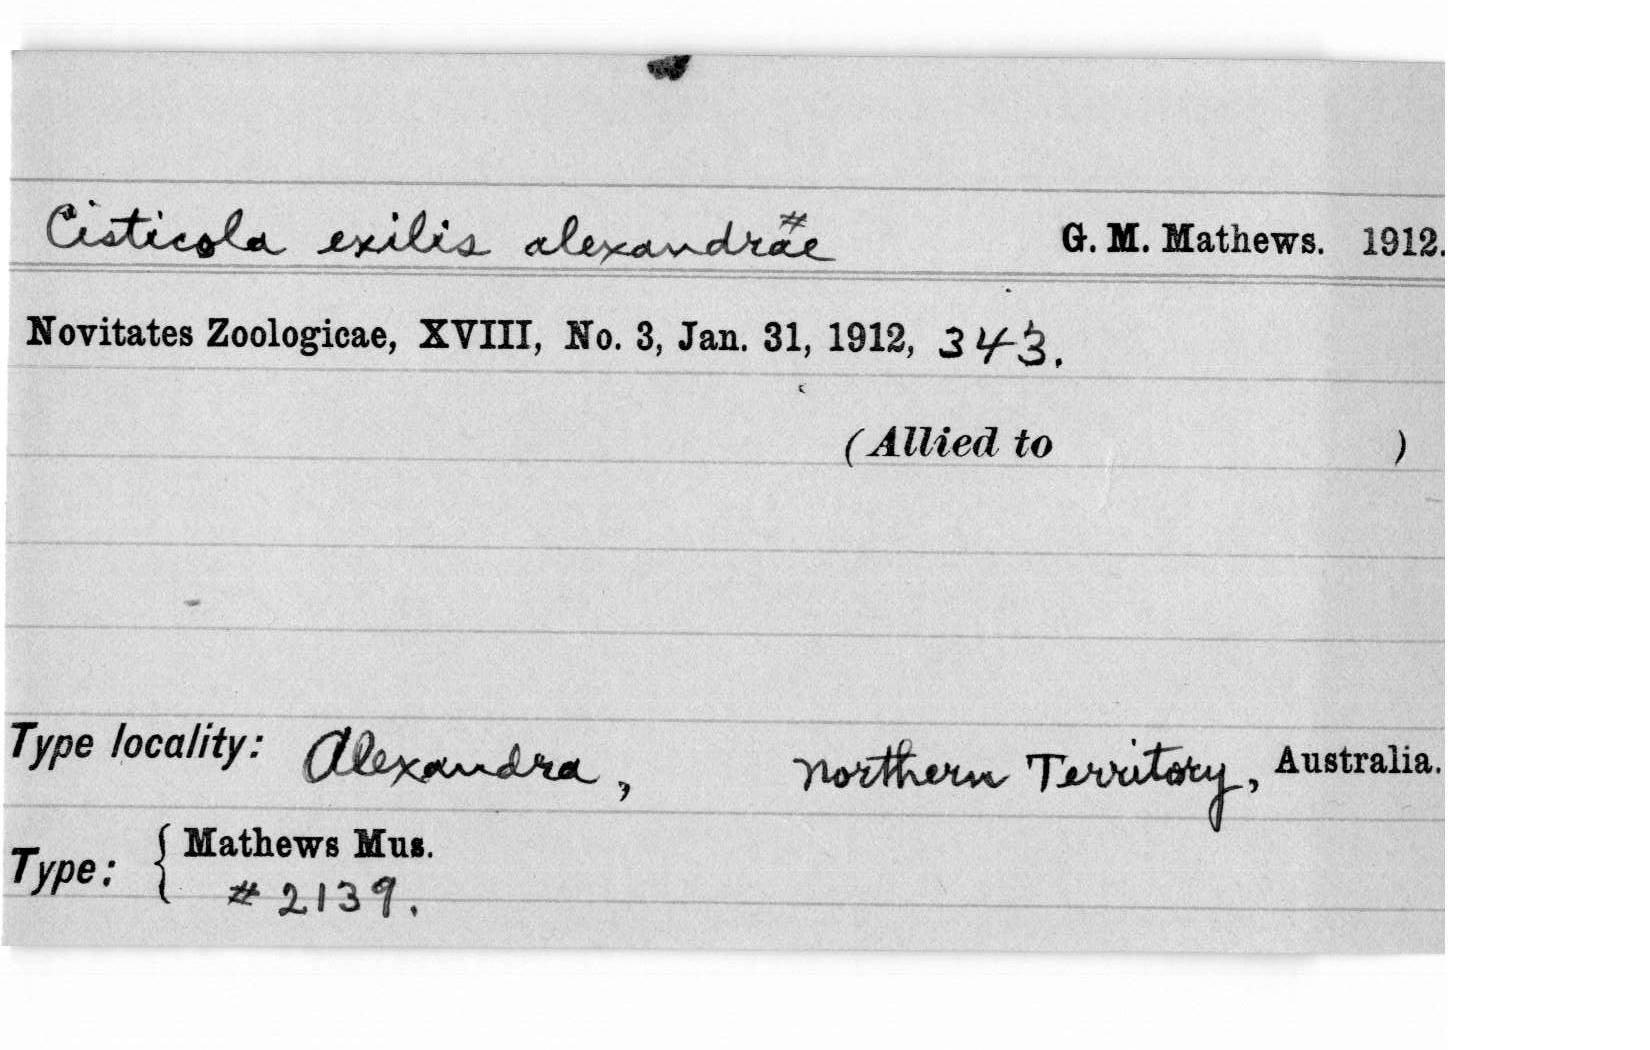 Cisticola exilis alexandrae # G. M. Mathews. 1912.
Novitates Zoologicae, XVIII, No. 3, Jan. 31, 1912, 343.
(Allied to )
Type locality: Alexandra, Northern Territory, Australia.
Type: { Mathews Mus.
# 2139.